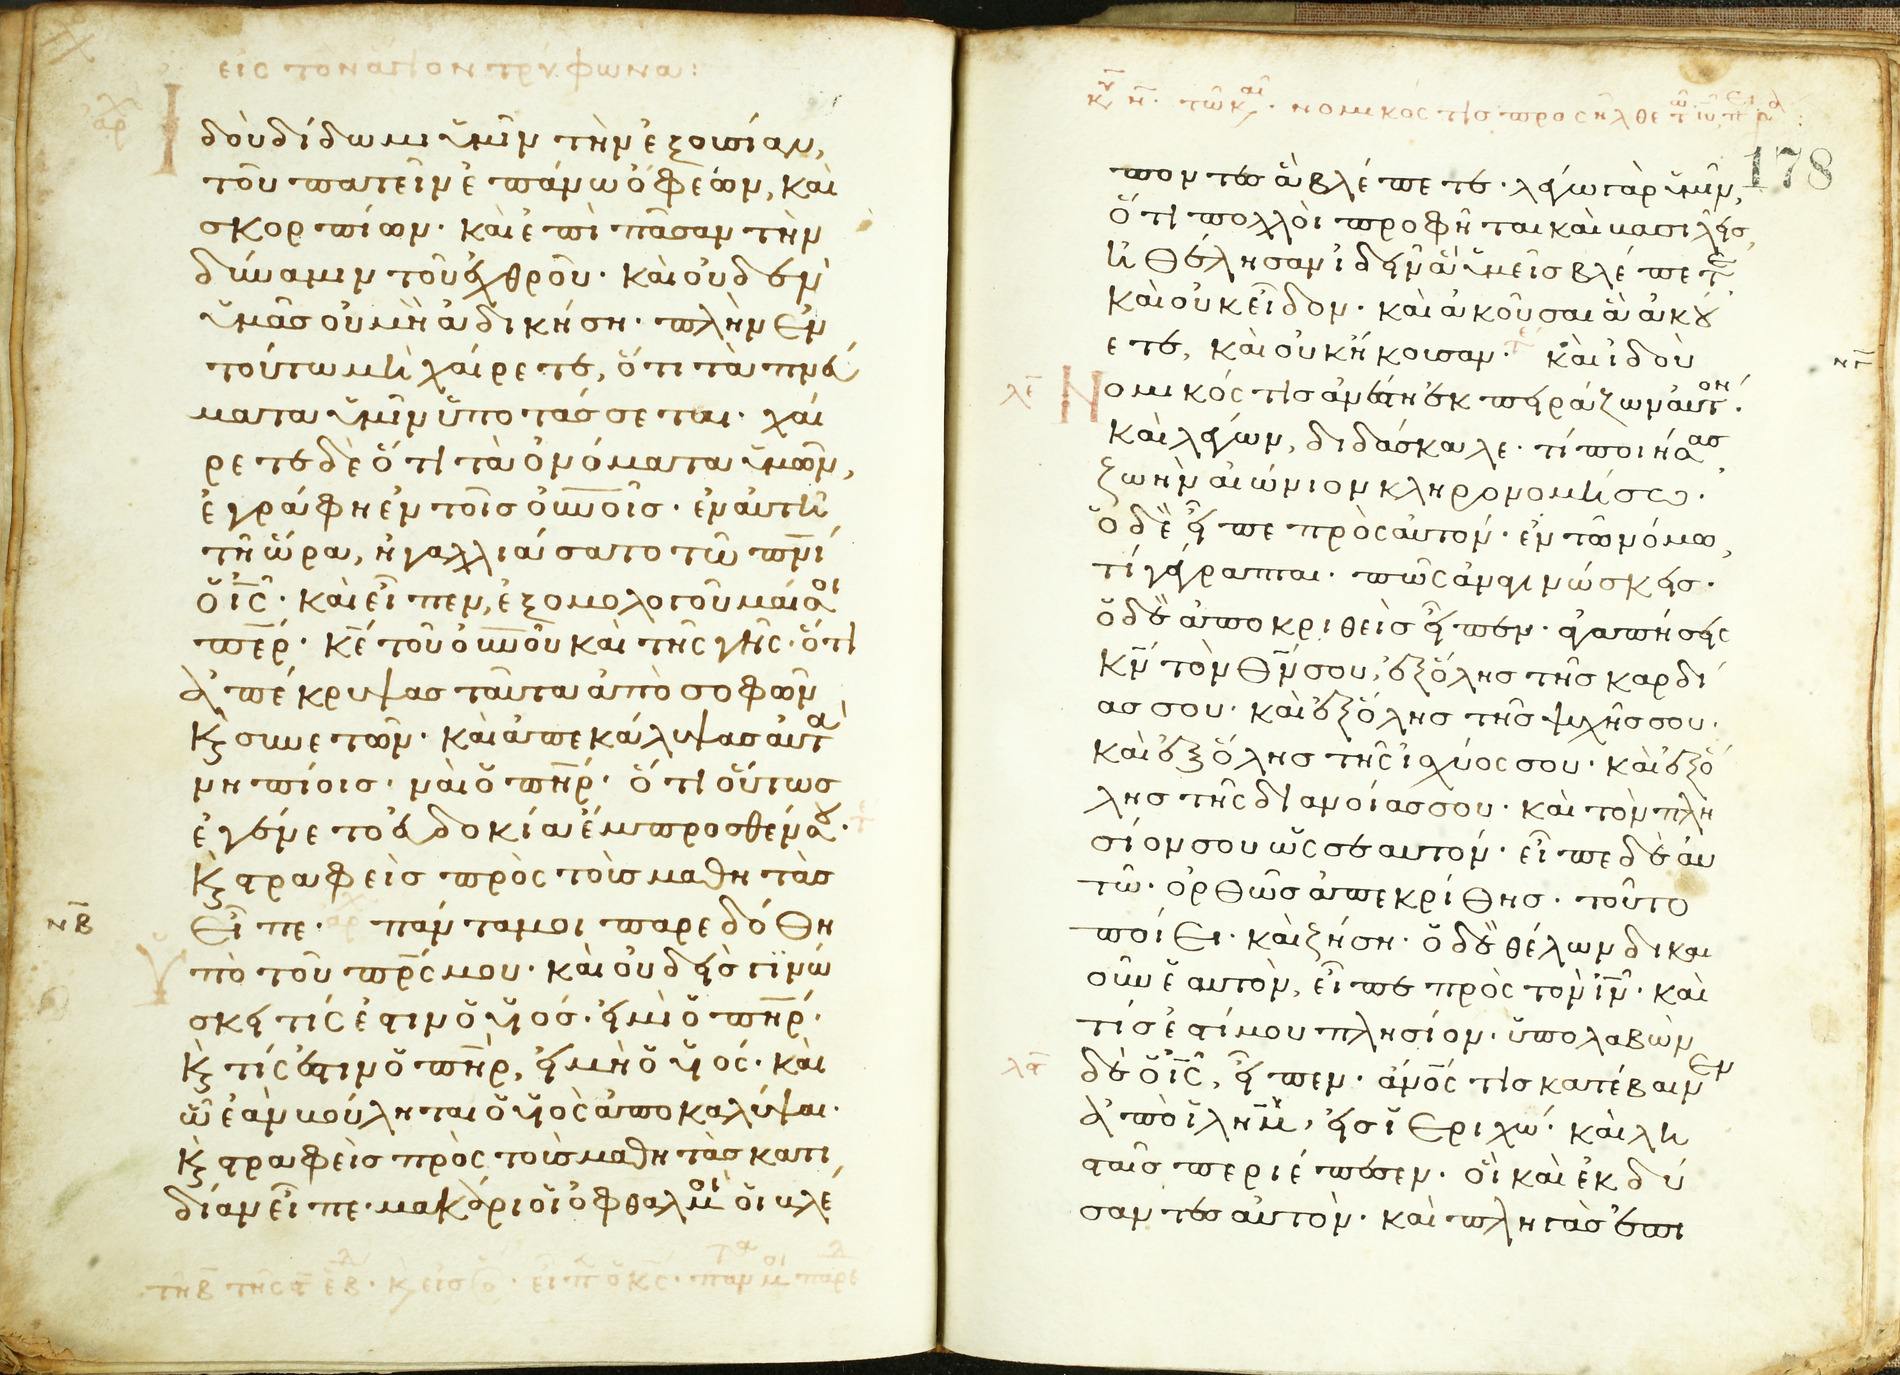 εἰς τὸν ἅγιον τρύφωνα:
Ἰδοὺ δίδωμι ὑμῖν τὴν ἐξουσίαν,
τοῦ πατεῖν ἐπάνω ὄφεων, καὶ
σκορπίων· καὶ ἐπὶ πᾶσαν τὴν
δύναμιν τοῦ ἐχθροῦ· καὶ οὐδὲν
ὑμᾶς οὐ μὴ ἀδικήση· πλὴν ἐν
τούτω μὴ χαίρετε, ὅτι τὰ πνεύ
ματα ὑμῖν ὑποτάσσεται· χαί
ρετε δὲ ὅτι τὰ ὀνόματα ὑμῶν,
ἐγράφη ἐν τοῖς οὐνοῖς· ἐν αὐτῆ
τῆ ὥρα, ἠγαλλιάσατο τῶ πνι
ὁ ις· καὶ εἶπεν, ἐξομολογοῦμαί σοι
περ· κε τοῦ οὐνοῦ καὶ τῆς γῆς· ὅτι
ἀπέκρυψας ταῦτα ἀπὸ σοφῶν
κ συνετῶν· καὶ ἀπεκάλυψας αὐτὰ
νηπίοις· ναὶ ὁ πηρ· ὅτι οὕτως
ἐγένετο εὐδοκία ἔμπροσθέν σου·
κ στραφεὶς πρὸς τοὺς μαθητὰς
εἶπε· πάντα μοι παρεδόθη
νβ
ὑπὸ τοῦ πρς μου· καὶ οὐδεὶς γινώ
σκει τίς ἐστιν ὁ υἱός· εἰ μὴ ὁ πηρ·
κ τίς ἐστιν ὁ πηρ, εἰ μὴ ὁ υἱός· καὶ
ὧ ἐὰν βούληται ὁ υἱὸς ἀποκαλύψαι·
κ στραφεὶς πρὸς τοὺς μαθητὰς κατι
δίαν εἶπε· μακάριοι οἱ ὀφθαλμοὶ οἱ βλέ
κυ η· τῶ καιρ· νομικός τις προσηλθε τω ιυ
178
ποντες ἃ βλέπετε· λέγω γὰρ ὑμῖν,
ὅτι πολλοὶ προφῆται καὶ βασιλεῖς,
ἠθέλησαν ἰδεῖν ἃ ὑμεῖς βλέπετε,
καὶ οὐκ εἶδον· καὶ ἀκοῦσαι ἃ ἀκού
ετε, καὶ οὐκ ἤκουσαν· καὶ ἰδοὺ
νγ
λε
Νομικός τις ἀνέστη ἐκπειράζων αὐτόν·
καὶ λέγων, διδάσκαλε· τί ποιήσας
ζωὴν αἰώνιον κληρονομήσω·
ὁ δὲ εἶπε πρὸς αὐτόν· ἐν τῶ νόμω,
τί γέγραπται· πῶς ἀναγινώσκεις·
ὁ δὲ ἀποκριθεὶς εἶπεν· ἀγαπήσεις
κν τὸν θν σου, ἐξ ὅλης τῆς καρδί
ας σου· καὶ ἐξ ὅλης τῆς ψυχῆς σου·
καὶ ἐξ ὅλης τῆς ἰσχύος σου· καὶ ἐξ ὅ
λης τῆς διανοίας σου· καὶ τὸν πλη
σίον σου ὡς σεαυτόν· εἶπε δὲ αὐ
τῶ· ὀρθῶς ἀπεκρίθης· τοῦτο
ποίει· καὶ ζήση· ὁ δὲ θέλων δικαι
οῦν ἑαυτὸν, εἶπε πρὸς τὸν ιν· καὶ
τίς ἐστί μου πλησίον· ὑπολαβὼν
λς
δὲ ὁ ις, εἶπεν· ἀνος τις κατέβαινεν
ἀπὸ ἱλημ, εἰς ἱεριχώ· καὶ λη
σταῖς περιέπεσεν· οἳ καὶ ἐκδύ
σαντες αὐτὸν· καὶ πληγὰς ἐπι